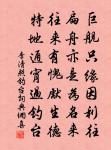 巨舰只缘因利往
扁舟亦是为名来
往来有愧先生德
特地通宵过钓台
李清照钓台词典网